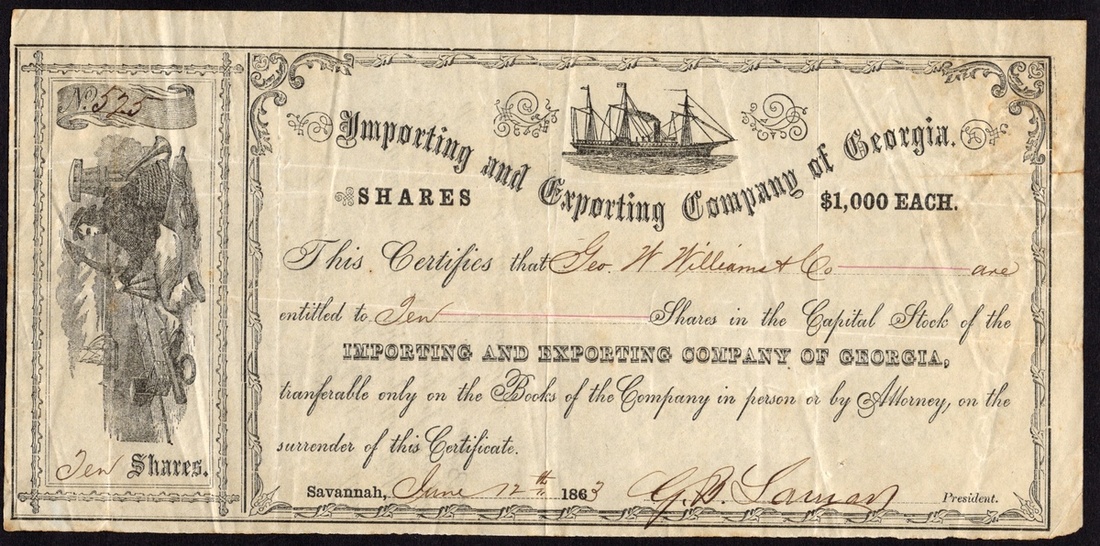 No. 525
Importing and Exporting Company of Georgia.
SHARES $1,000 EACH.
This Certifies that Geo. W Williams & Co are
entitled to Ten Shares in the Capital Stock of the
IMPORTING AND EXPORTING COMPANY OF GEORGIA,
tranferable only on the Books of the Company in person or by Attorney, on the
surrender of this Certificate.
Ten Shares.
Savannah, June 12th 1863 G. B. Lamar President.